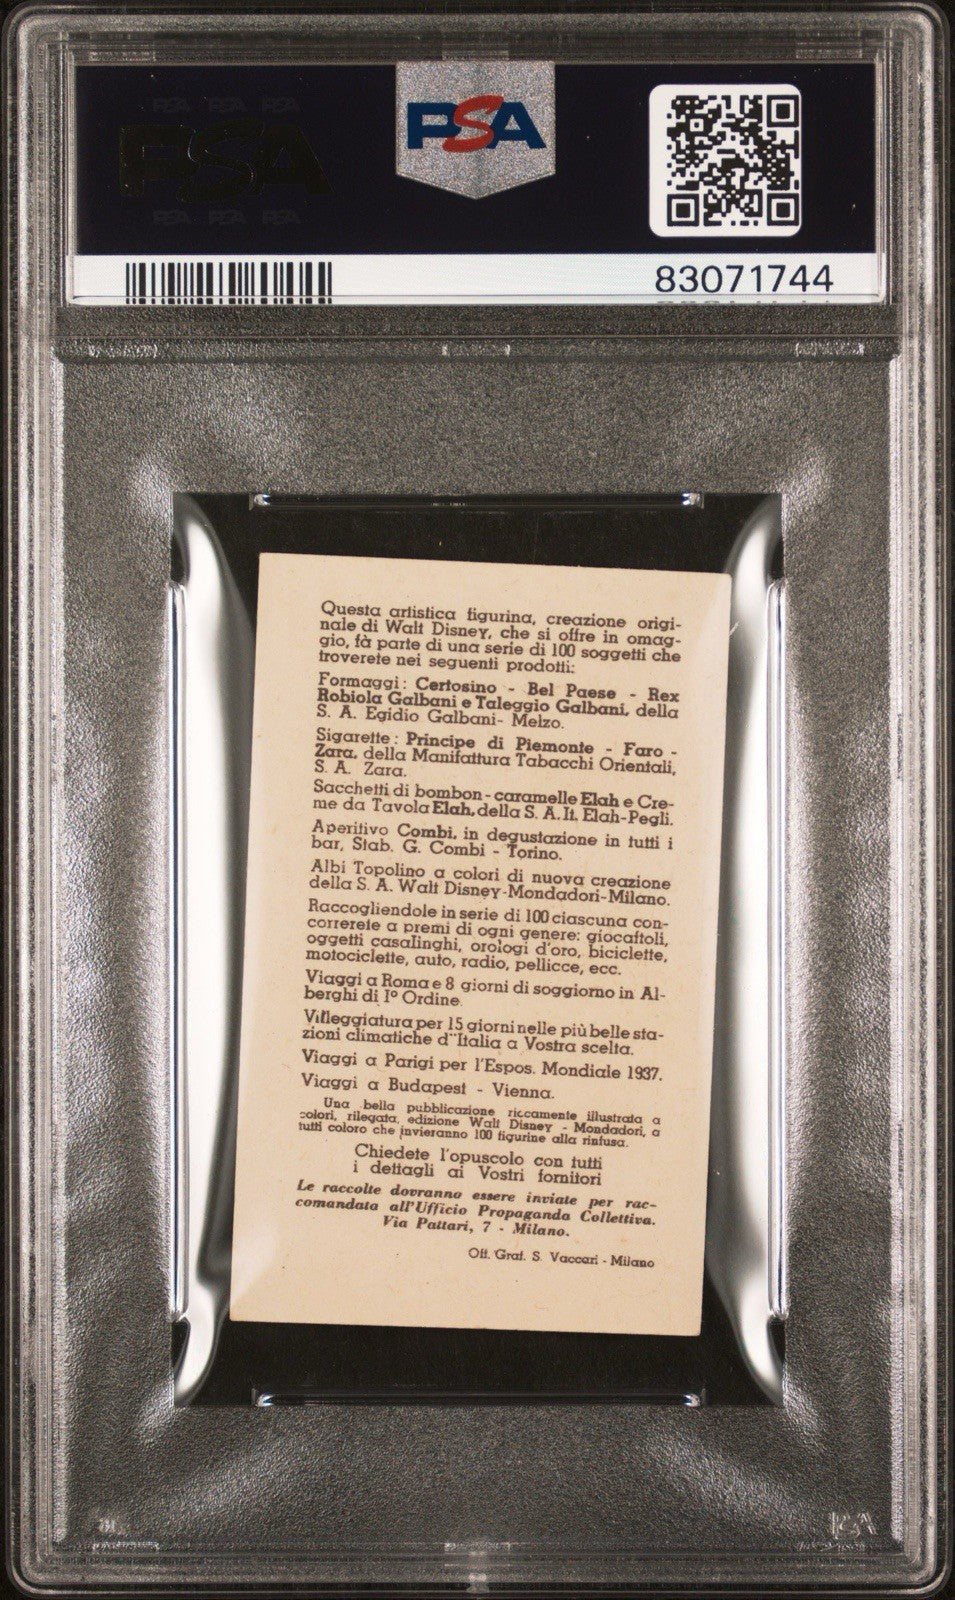 PSA PSA PSA
PSA
PSA PSA PSA
PSA
83071744
Questa artistica figurina, creazione origi-
nale di Walt Disney, che si offre in omag-
gio, fà parte di una serie di 100 soggetti che
troverete nei seguenti prodotti:
Formaggi: Certosino - Bel Paese - Rex
Robiola Galbani e Taleggio Galbani, della
S. A. Egidio Galbani- Melzo.
Sigarette: Principe di Piemonte - Faro -
Zara, della Manifattura Tabacchi Orientali,
S. A. Zara.
Sacchetti di bombon - caramelle Elah e Cre-
me da Tavola Elah, della S. A. It. Elah-Pegli.
Aperitivo Combi, in degustazione in tutti i
bar, Stab. G. Combi - Torino.
Albi Topolino a colori di nuova creazione
della S. A. Walt Disney-Mondadori-Milano.
Raccogliendole in serie di 100 ciascuna con-
correrete a premi di ogni genere: giocattoli,
oggetti casalinghi, orologi d'oro, biciclette,
motociclette, auto, radio, pellicce, ecc.
Viaggi a Roma e 8 giorni di soggiorno in Al-
berghi di I° Ordine
Villeggiatura per 15 giorni nelle più belle sta-
zioni climatiche d'Italia a Vostra scelta.
Viaggi a Parigi per l'Espos. Mondiale 1937.
Viaggi a Budapest - Vienna.
Una bella pubblicazione riccamente illustrata a
colori, rilegata, edizione Walt Disney - Mondadori, a
tutti coloro che invieranno 100 figurine alla rinfusa.
Chiedete l'opuscolo con tutti
i dettagli ai Vostri fornitori
Le raccolte dovranno essere inviate per rac-
comandata all'Ufficio Propaganda Collettiva.
Via Pattari, 7 - Milano.
Off. Graf. S. Vaccari - Milano